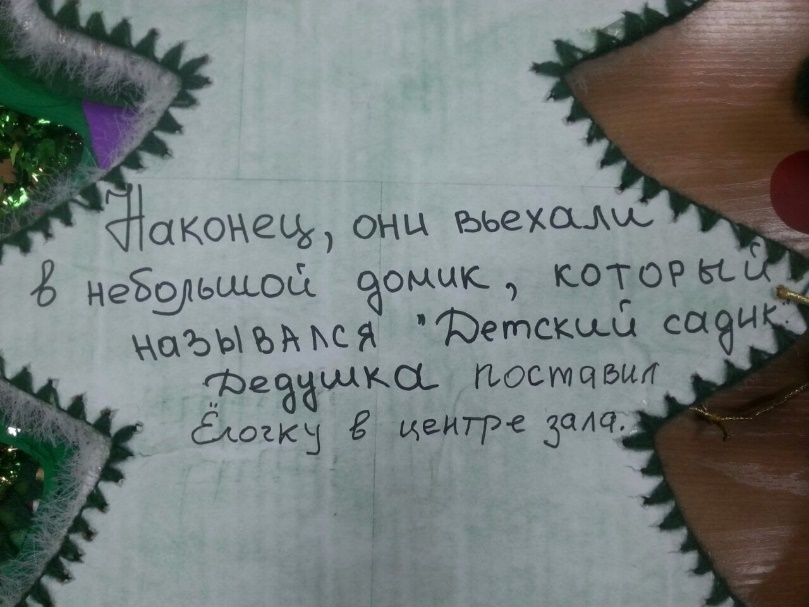 Наконец, они вьехали
в небольшой домик, который
назывался "Детский садик".
Дедушка поставил
Ёлочку в центре зала.